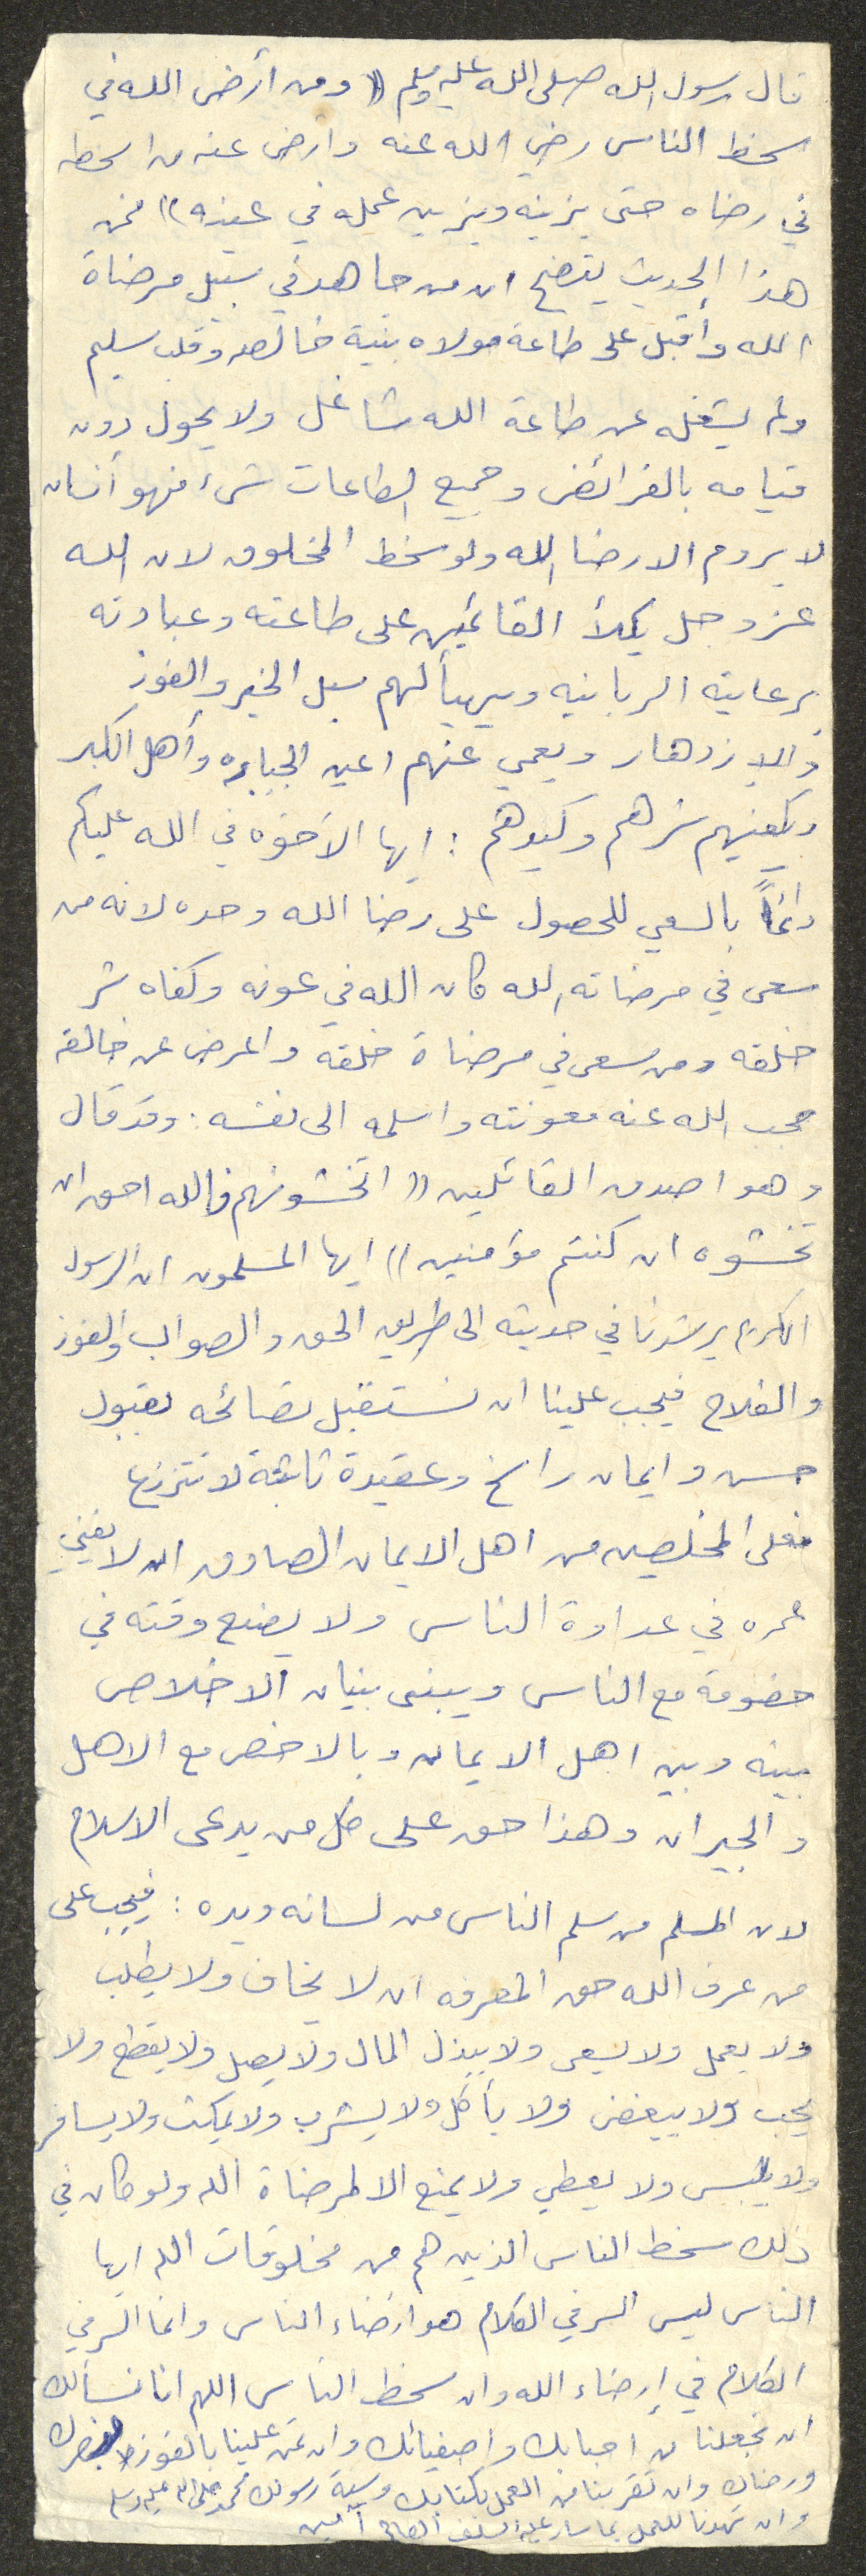 قال رسول الله صلى الله عليه وسلم (( ومن أرضى الله في
سخط الناس رضي الله عنه وأرضى عنه من اسخطه
في رضاه حتى يزينه ويزين عمله في عينه )) فمن
هذا الحديث يتضح ان من جاهد في سبيل مرضاة
الله وأقبل على طاعة مولاه بنية خالصه وقلب سليم
ولم يشغله عن طاعة الله شاغل ولا يحول دون
قيامه بالفرائض وجميع الطاعات شيء فهو أنسان
لا يروم الا رضا الله ولو سخط المخلوق لان الله
عز وجل يكلأ القائمين على طاعته وعبادته
برعايته الربانيه ويهيأ لهم سبل الخير والفوز
والازدهار ويعمي عنهم اعين الجبابره وأهل الكبر
ويكفيهم شرهم وكيدهم : ايها الأخوه في الله عليكم
دائماً بالسعي للحصول على رضا الله وحده لانه من
سعى في مرضاته الله كان الله في عونه وكفاه شر
خلقه ومن سعى في مرضاة خلقه واعرض عن خالقه
حجب الله عنه معونته واسلمه الى نفسه : وقد قال
وهو اصدق القائلين (( اتخشونهم فالله احق ان
تخشوه ان كنتم مؤمنين )) ايها المسلمون ان الرسول
الكريم يرشدنا في حديثه الى طريق الحق والصواب والفوز
والفلاح فيجب علينا ان نستقبل نصائحه بقبول
حسن وايمان راسخ وعقيدة ثابتة لا تتزعزع
فعلى المخلصين من اهل الايمان الصادق ان لا يفني
عمره في عداوة الناس ولا يضيع وقته في
خصومة مع الناس ويبنى بنيان الاخلاص
بينه وبين اهل الايمان وبالاخص مع الاهل
والجيران وهذا حق على كل من يدعى الاسلام
لان المسلم من سلم الناس من لسانه ويده : فيجب على
من عرف الله حق المعرفه ان لا يخاف ولا يطلب
ولا يعمل ولا يسعى ولا يبذل المال ولا يصل ولا يقطع ولا
يحب ولا يبغض ولا يأكل ولا يشرب ولا يمكث ولا يسافر
ولا يلبس ولا يعطي ولا يمنع الا لمرضاة الله ولو كان في
ذلك سخط الناس الذين هم من مخلوقات الله ايها
الناس ليس السر في الكلام هو ارضاء الناس وانما السر في
الكلام في إرضاء الله وان سخط الناس اللهم انا نسألك
ان تجعلنا من احبابك واصفيائك وان تمن علينا بالفوز بنصرك
ورضاك وان تقربنا من العمل بكتابك وسنة رسولك محمد صلى الله عليه وسلم
وان تهدنا للعمل بما سار عليه السلف الصالح آمين